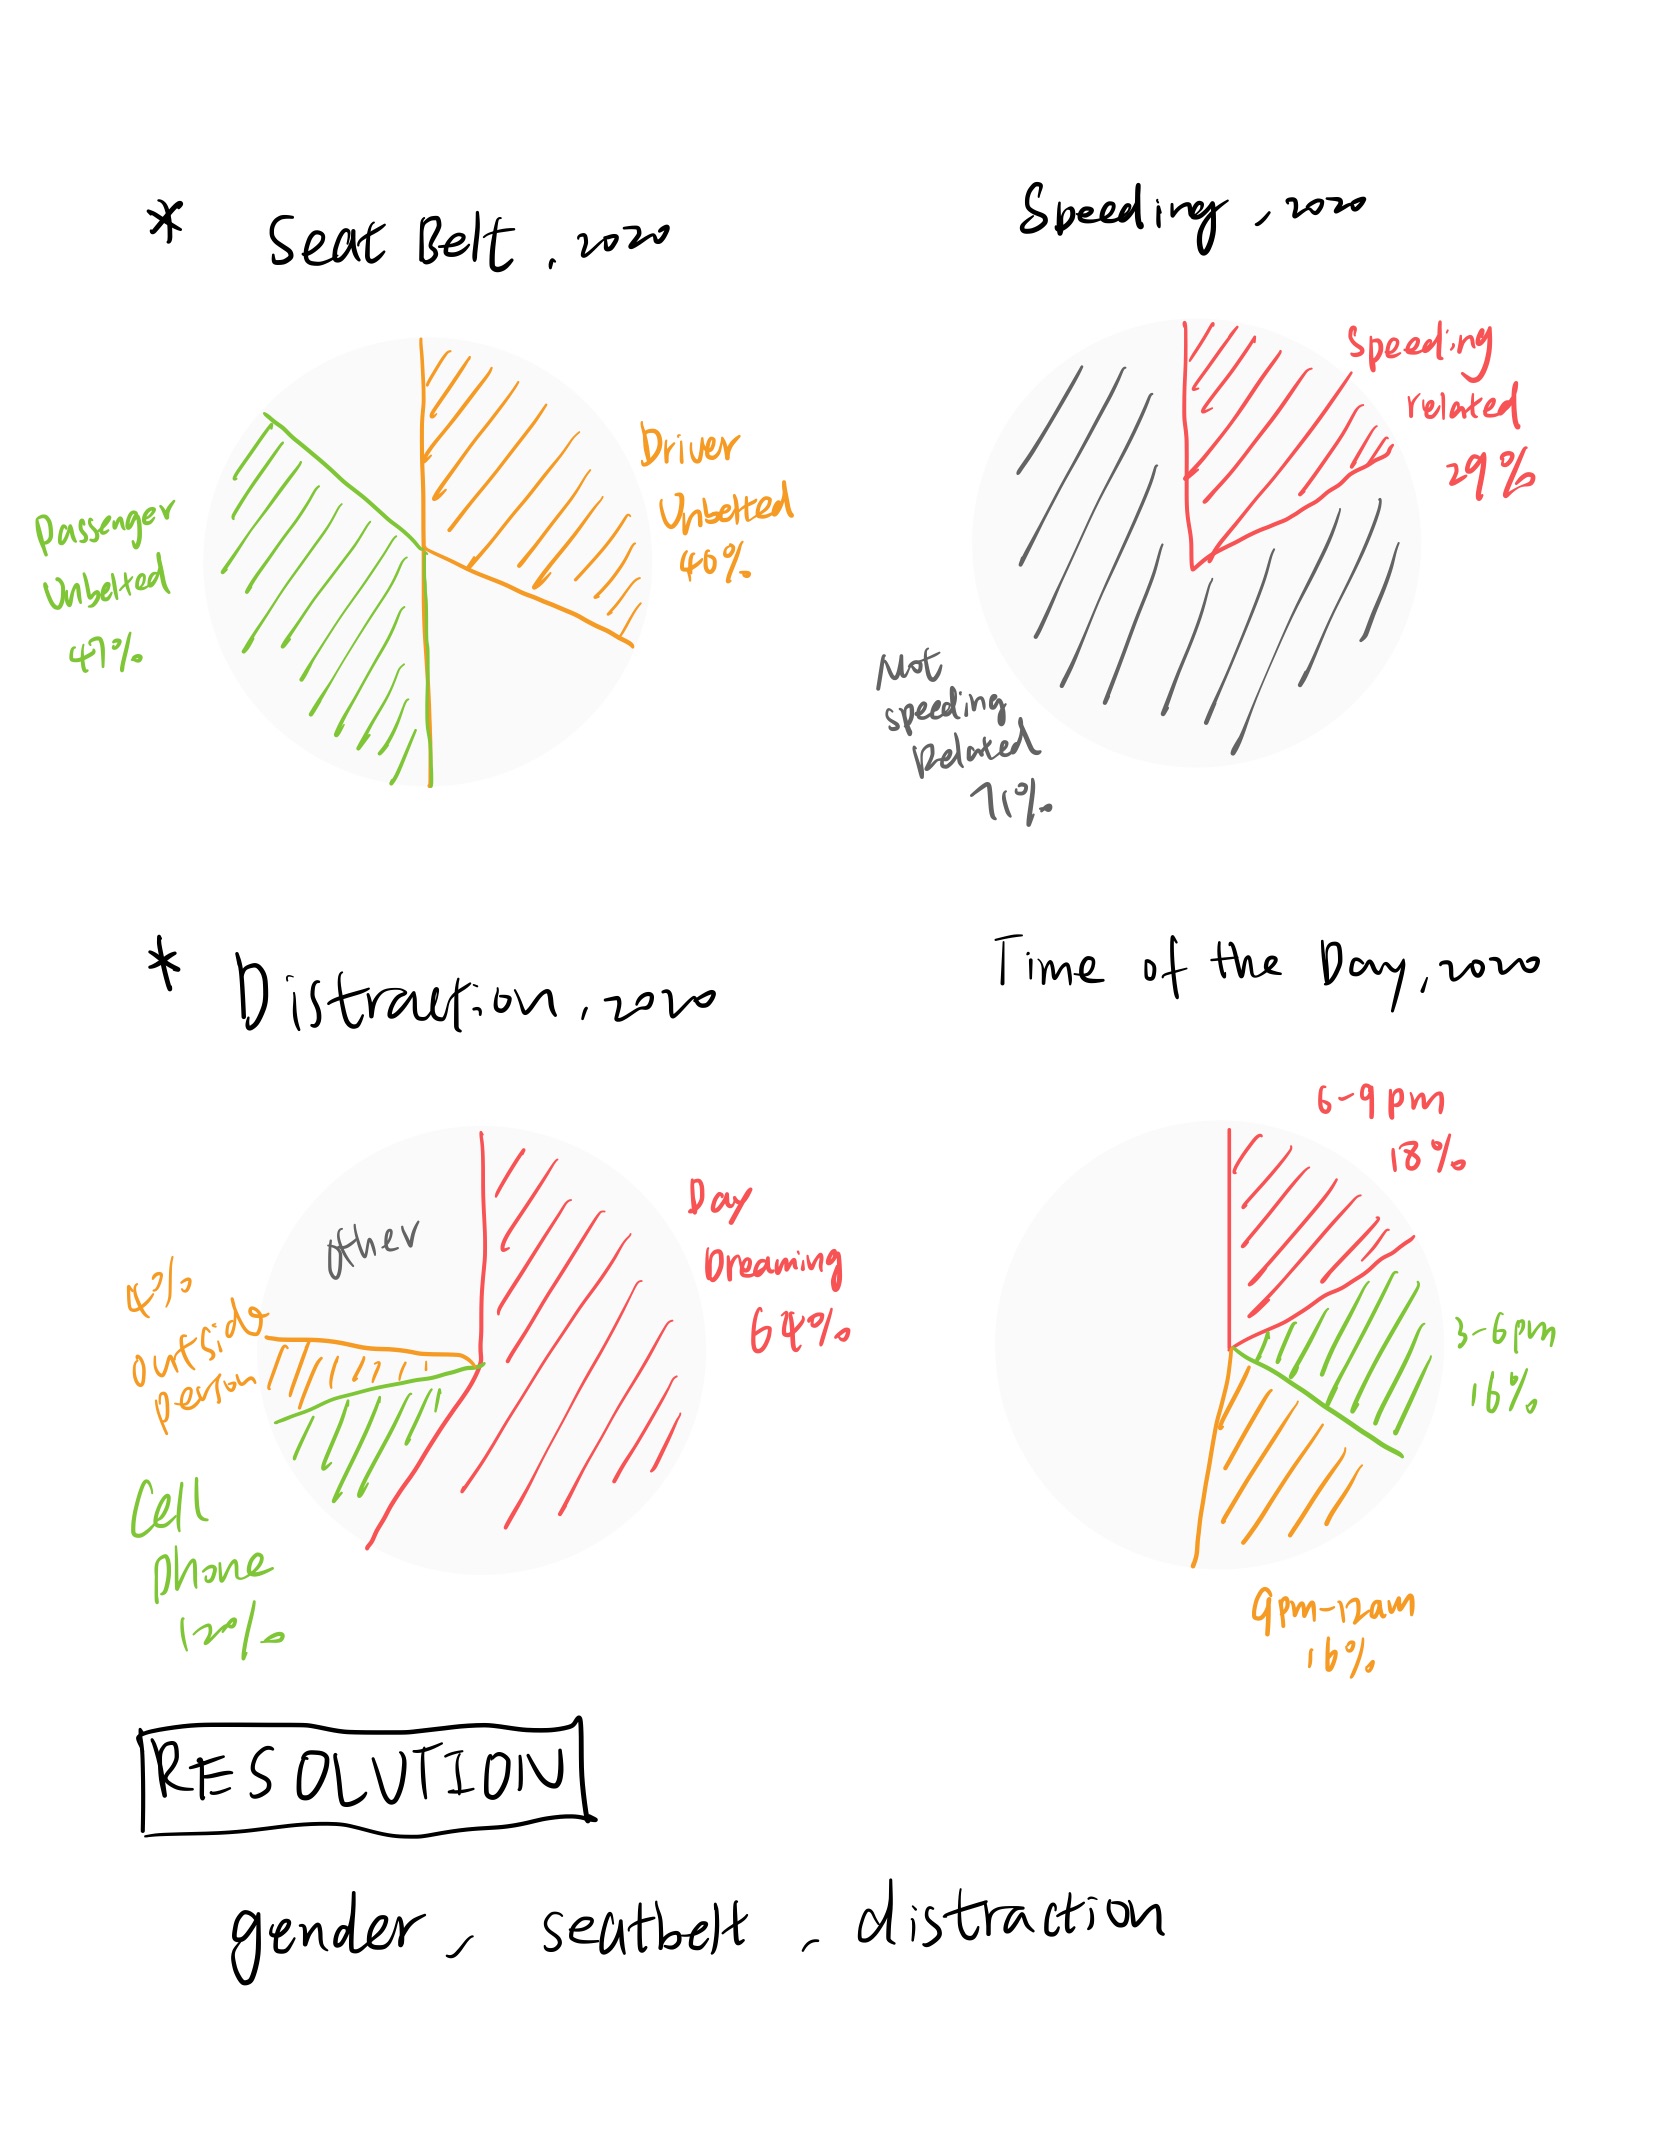 * Seat Belt, 2020
Driver
Unbelted
40%
Passenger
Unbelted
47%
Speeding, 2020
Speeding
related
29%
Not
speeding
Related
71%
* Distraction, 2020
Day
Dreaming
64%
other
4%
outside
person
Cell
phone
12%
Time of the Day, 2020
6-9pm
18%
3-6pm
16%
9pm-12am
16%
RESOLUTION
gender, seatbelt, distraction